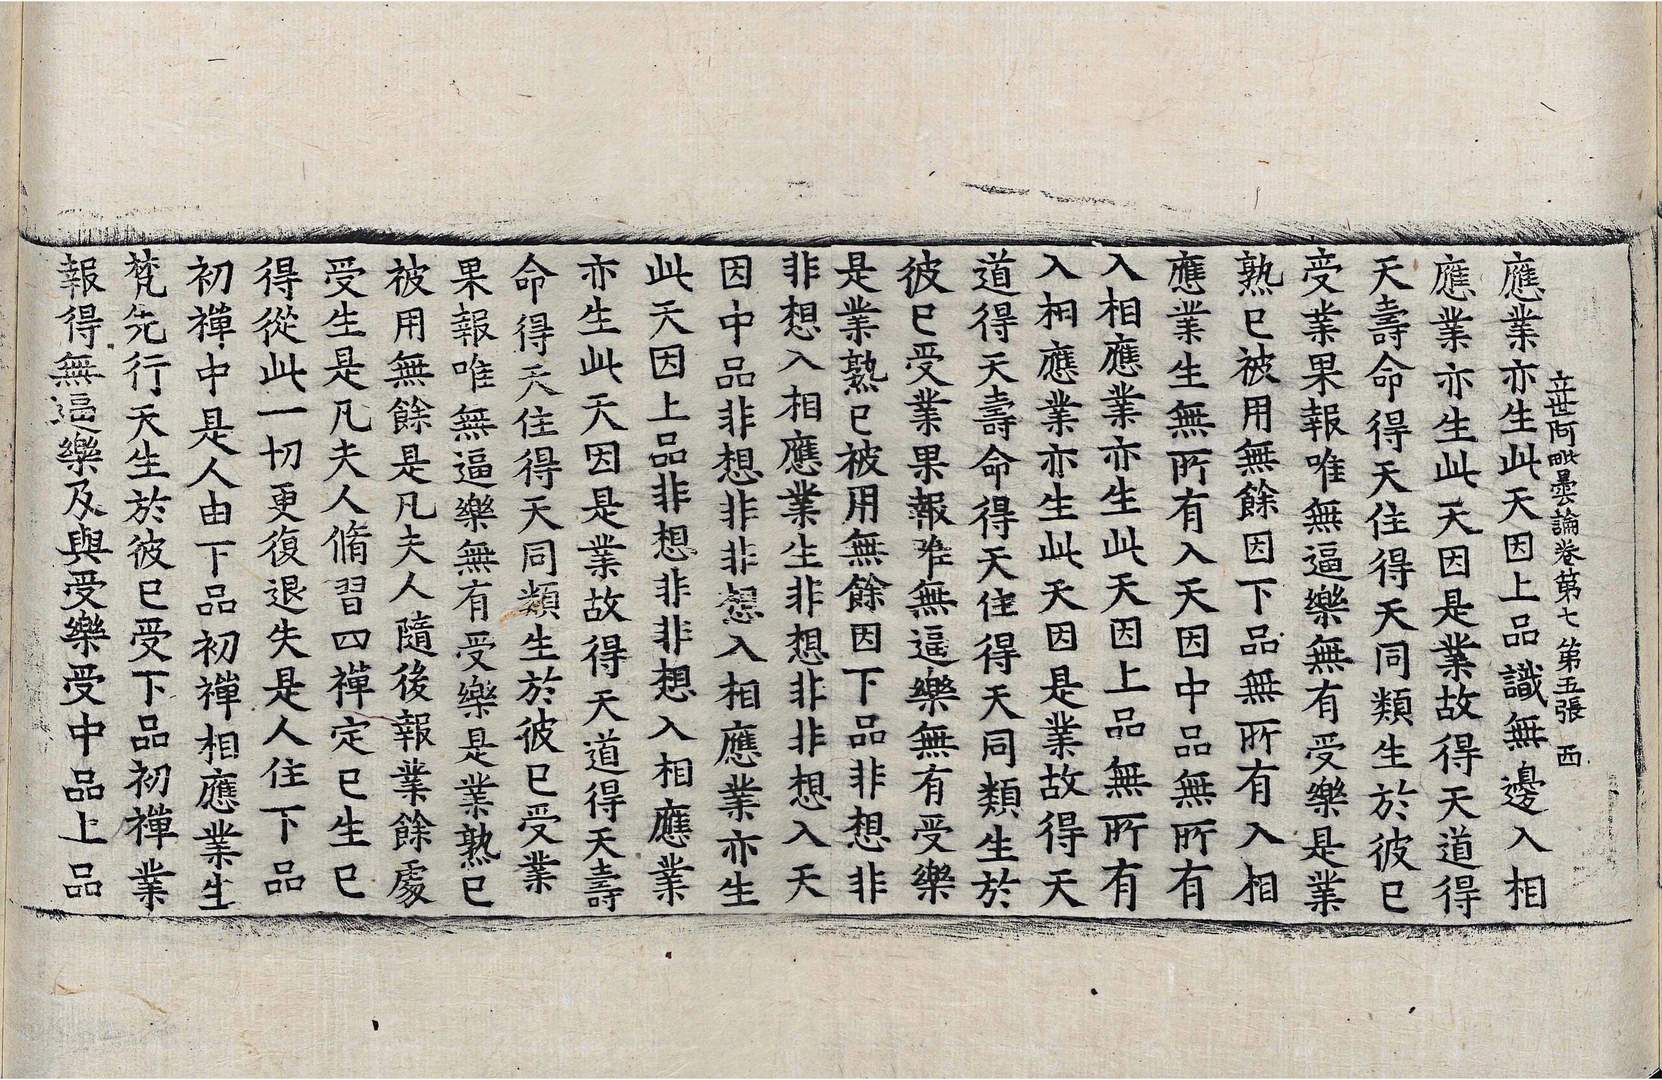 立世阿毗曇論卷第七 第五張 西
應業亦生此天因上品識無邊入相
應業亦生此天因是業故得天道得
天壽命得天住得天同類生於彼已
受業果報唯無逼樂無有受樂是業
熟已被用無餘因下品無所有入相
應業生無所有入天因中品無所有
入相應業亦生此天因上品無所有
入相應業亦生此天因是業故得天
道得天壽命得天住得天同類生於
彼已受業果報唯無逼樂無有受樂
是業熟已被用無餘因下品非想非
非想入相應業生非想非非想入天
因中品非想非非想入相應業亦生
此天因上品非想非非想入相應業
亦生此天因是業故得天道得天壽
命得天住得天同類生於彼已受業
果報唯無逼樂無有受樂是業熟已
被用無餘是凡夫人隨後報業餘處
受生是凡夫人脩習四禪定已生已
得從此一切更復退失是人住下品
初禪中是人由下品初禪相應業生
梵先行天生於彼已受下品初禪業
報得無逼樂及與受樂受中品上品